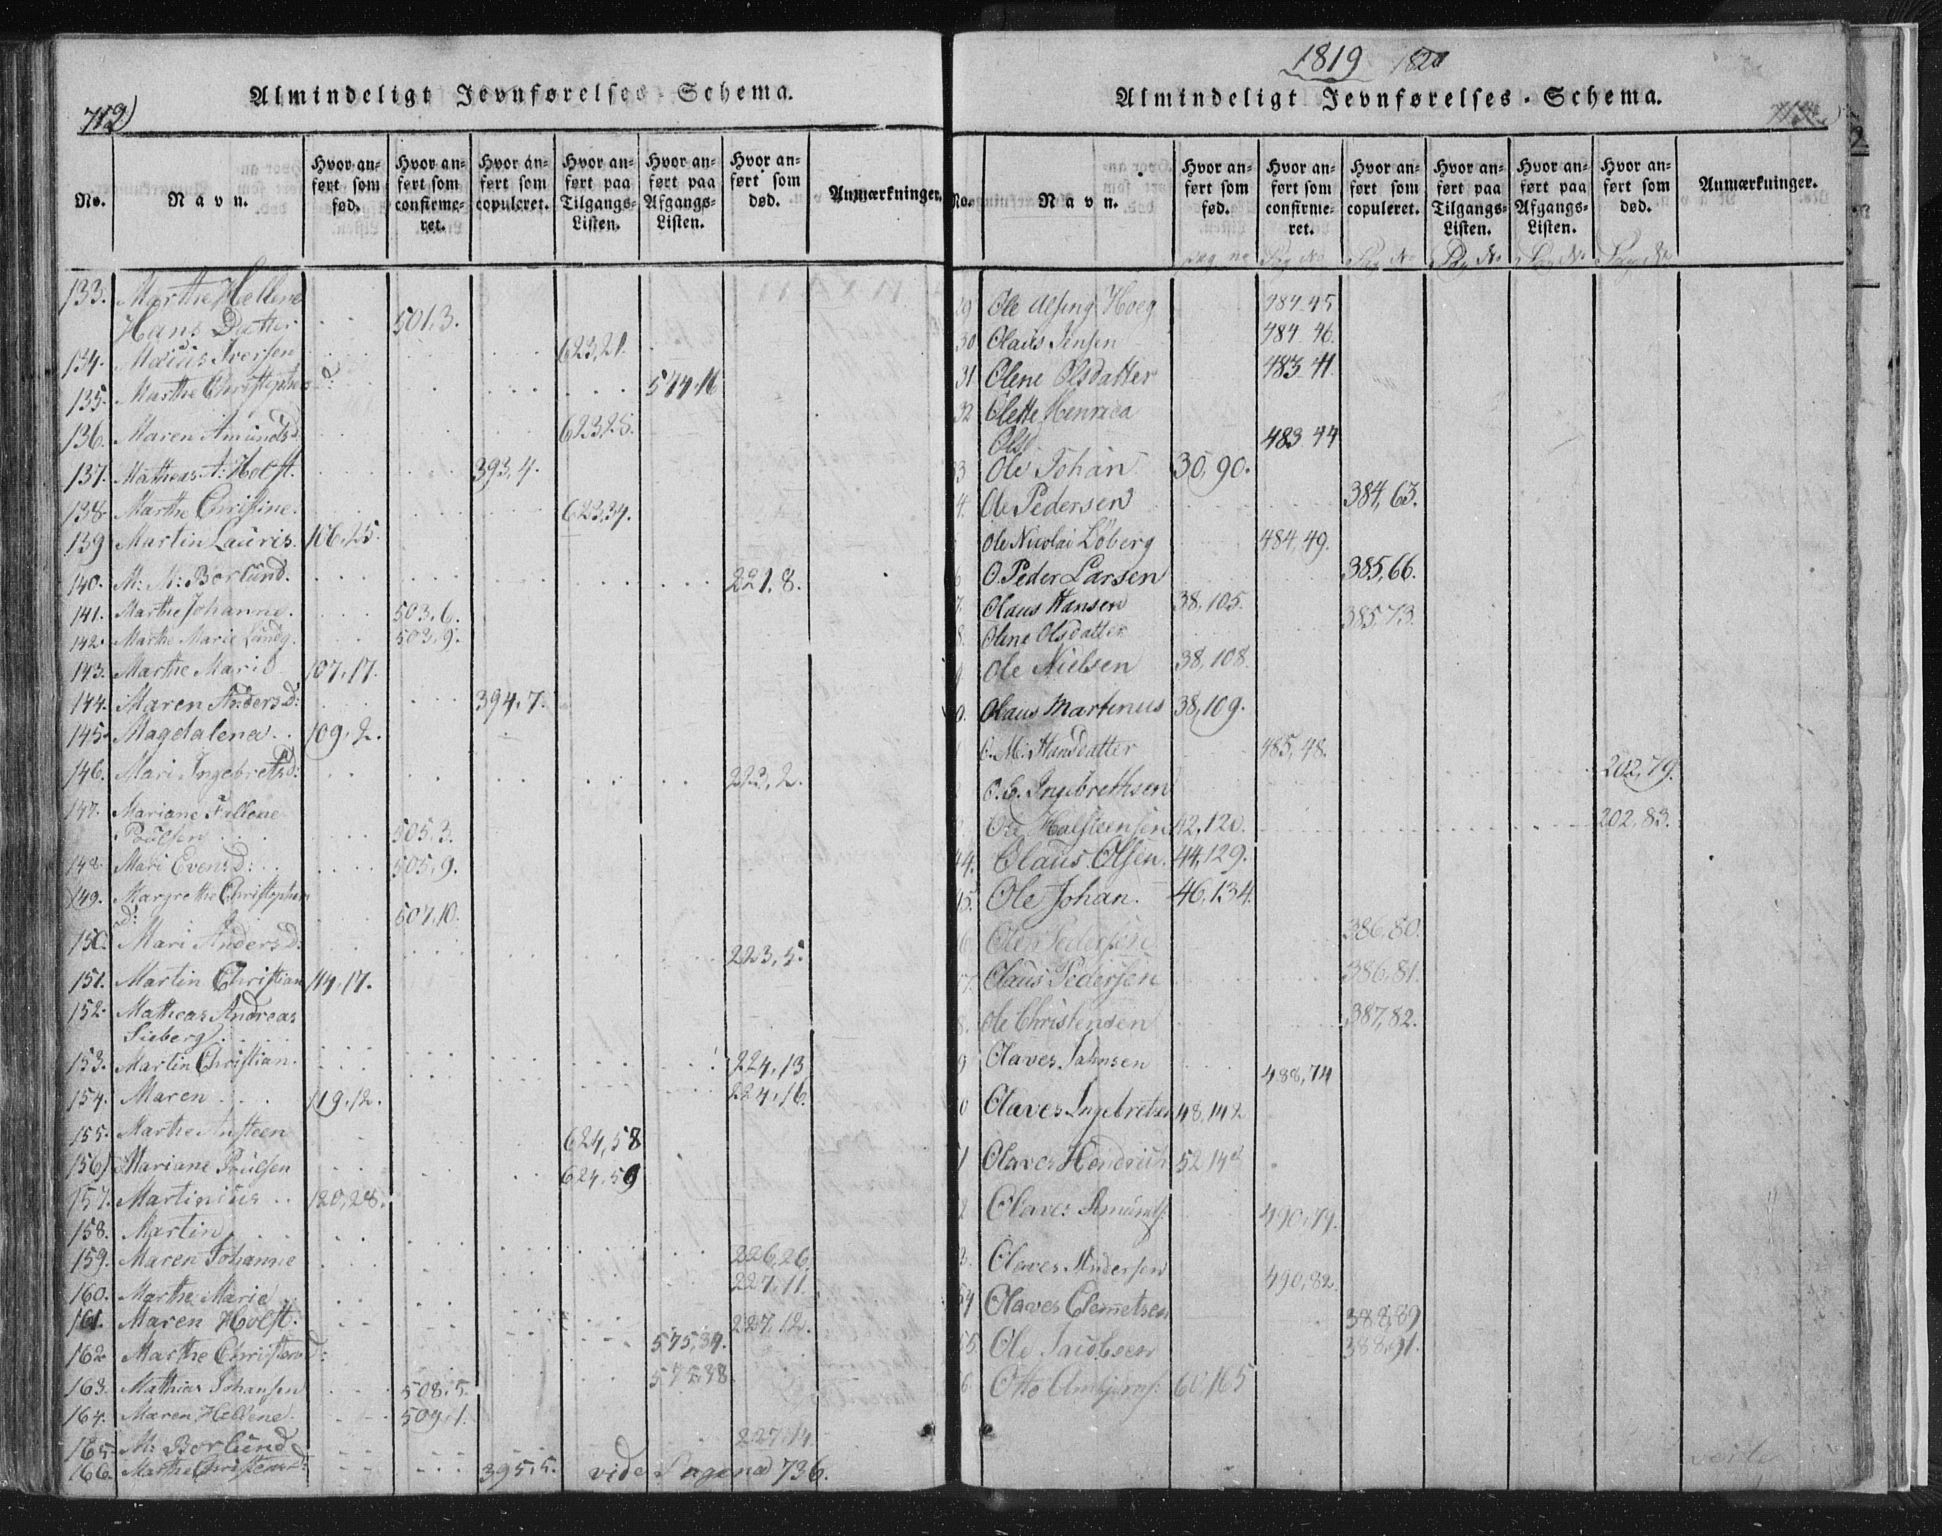 712)
Almindeligt Jevnførelses-Schema.
No.
Navn.
Hvor an-
ført som
fød.
Hvor an-
ført som
confirme-
ret.
Hvor an-
ført som
copuleret.
Hvor an-
ført paa
Tilgangs-
Listen.
Hvor an-
ført paa
Afgangs-
Listen.
Hvor an-
ført som
død.
Anmærkninger.
133. Marthe Hellene
Hans Datter 501,3.
134. Iversen 623,21.
135. Marthe Christophers D: 574,16
136. Maren Amundsd. 623,28.
137. Matheas A: Holst. 393,4.
138. Marthe Christine. 623,34.
139 Martin Lauris. 106,25.
140. M: M: Borlund. 221,8.
141. Marthe Johanne. 503,6.
142. Marthe Marie Lundg. 503,9.
143. Marthe Marie 107,17.
144. Maren Anders D: 394,7.
145. Magdalena 109,2.
146. Mari Ingebretsd: 223,2.
147. Mariane Fillene
Poulsen 505,3.
148. Mari Evensd: 505,9.
149. Margrethe Christophers
d: 507,10.
150. Mari Anders D: 223,5.
151. Martin Christian 114,17.
152. Matheas Andreas
Sieberg
153. Martin Christian. 224,13
154. Maren 119,12. 224,16.
155. Marthe Ansteen 624,58
156) Mariane Poulsen 624,59
157. Martinius 120,28.
158. Martin
159. Maren Johanne 226,26.
160. Marthe Marie 227,11.
161. Maren Holst. 227,12.
162. Marthe Christensd: 575,34.
163. Mathias Johansen 508,5. 575,38.
164. Maren Hellene 509,1.
165. M: Borlund 227,14
166. Marthe Christensd: 395,5. vide Pagena 736.
1819 1820
Almindeligt Jevnførelses-Schema.
713.
No.
Navn.
Hvor an-
ført som
fød.
Hvor an-
ført som
confirme-
ret.
Hvor an-
ført som
copuleret.
Hvor an-
ført paa
Tilgangs-
Listen.
Hvor an-
ført paa
Afgangs-
Listen.
Hvor an-
ført som
død.
Anmærkninger.
Pag No Pag No Pag No Pag No Pag No Pag No
29 Ole Alsing Hoeg 484 45
30 Olaus Jensen 484 46.
31 Olene Olsdatter 483 41.
32 Olette Henrica
Olsd 483 44
33 Ole Johan 30,90.
4. Ole Pedersen 384,63.
Ole Nicolai Löberg 484,49.
6 O. Peder Larsen 385,66.
7. Olaus Hansen 38,105.
8. Olene Olsdatter 385,73.
9 Ole Nielsen 38,108.
0. Olaus Martinus 38,109.
O. M. Hansdatter 485,48.
O. E. Ingebrethsen 202,79.
Ole Halsteensen 42,120. 202,83.
44. Claus Olsen. 44,129.
45. Ole Johan. 46,134.
6 Ole Pedersen 386,80.
47. Claus Pedersen 386,81.
8. Ole Christensen 387,82.
9 Olaves Jahnsen 488,74
0 Olaves Ingebretsen 48,142
1 Olaves Hendrich 52 14
2 Olaves Amunds: 490,79.
3. Olaves Andersen 490,82
54 Olaves Clemetsen 388,89
55. Ole Jacobsen 388,91.
6. Otto 60,165
verte